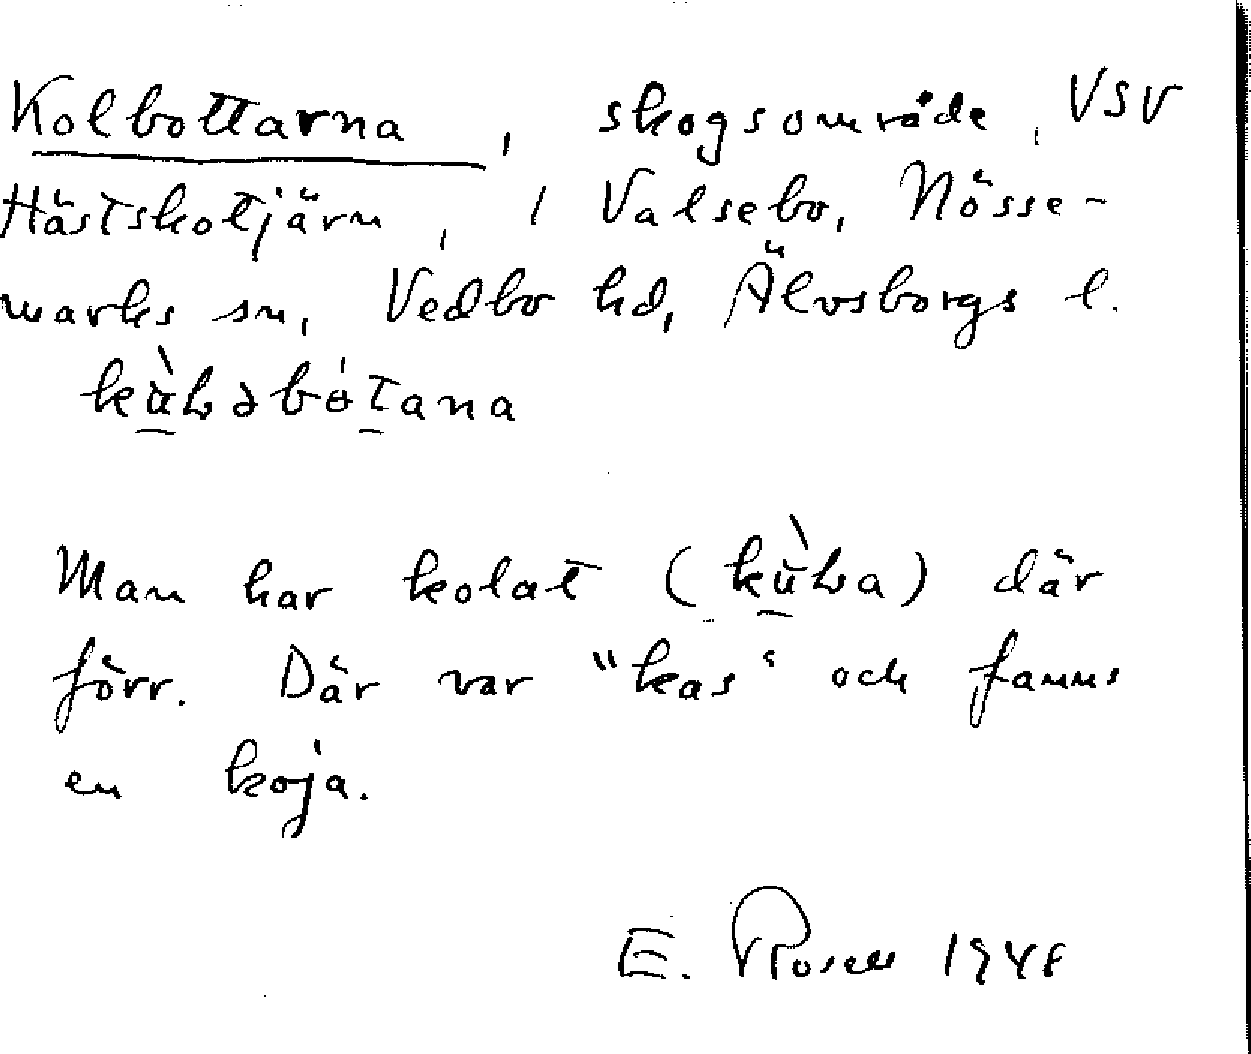 Kolbottarna, skogsområde, VSV
Hästskotjärn, i Valsebo, Nösse-
marks sn, Vedbo hd, Älvsborgs l.
Man har kolat ( ) där
förr. Där var "kas" och fanns
en koja.
E. Rosell 1948